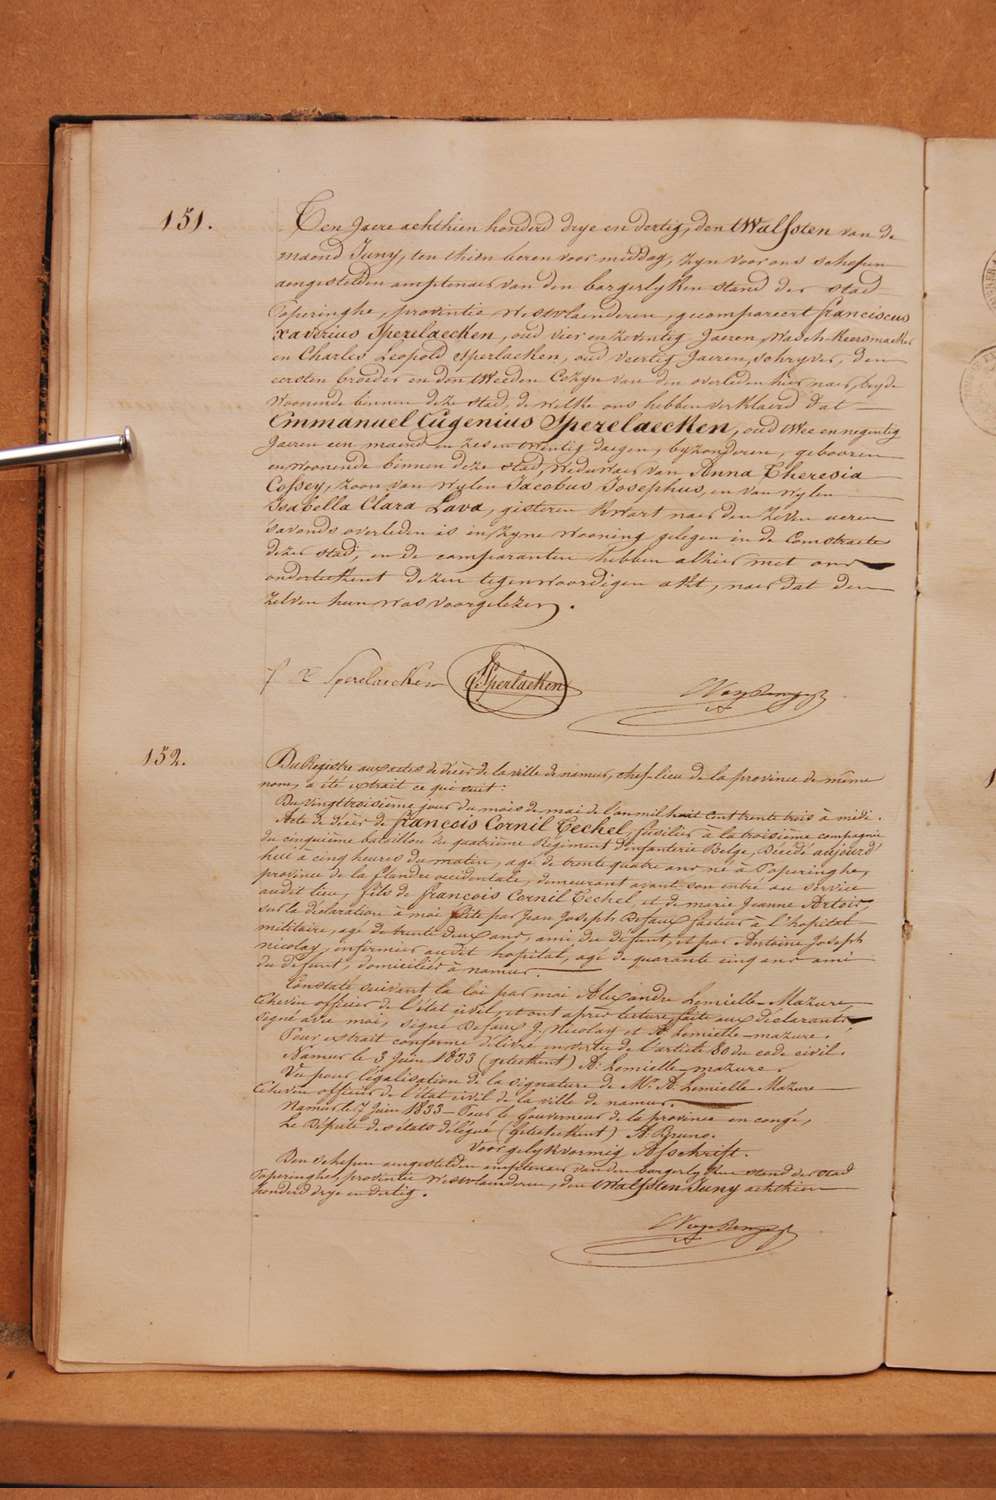 151.
Ten Jaere achthien honderd drye en dertig, den twalfsten van de
maand Juny, ten thien üeren voor middag, zyn voor ons schepen
aengestelden amptenaer van den borgerlyken stand der stad
Poperinghe, provintie Westvlaenderen, gecompareert franciscus
Xaverius Sperelaecken, oud vier en zeventig Jaeren, Wasch-Keersmaeker
en Charles Leopold Sperlaeken, oud veertig Jaeren, schryver, den
eersten broeder en den tweeden Cozyn van den overleden hier naer, beyde
woonende binnen deze stad, de welke ons hebben verklaerd dat
Emmanuel Eugenius Sperelaecken, oud twee en negentig
Jaeren een maend en zes en twintig daegen, byzonderen, gebooren
en woonende binnen deze stad, Weduwaer van Anna Theresia
Cossey, zoon van wylen Jacobus Josephus, en van wylen
Isabella Clara Lava, gisteren kwart naer den zéven ueren
s'avonds overleden is in zyne wooning gelegen in de
dezer stad, en de comparanten hebben alhier met ons
onderteekent dezen tegenwoordigen akt, naer dat den
zelven hun was voorgelezen.
f x Sperelaecken Sperlaeken
152.
Du Registre aux actes de décès de la ville de namur, chef-lieu de la province de même
nom, a été extrait ce qui suit:
Du vingt troisième jour du mois de mai de l'an mil huit cent trente trois à midi.
Acte de décès de francois Cornil Techel, fusilier à la troisième compagnie
du cinquième bataillon du quatrième Régiment d'infanterie Belge, décédé aujourd'
hui à cinq heures du matin, agé de trente quatre ans né à Poperinghe,
province de la flandre occidentale, demeurant avant son entré au service
audit lieu, fils de francois Cornil Techel, et de marie Jeanne Artoir,
sur la déclaration à moi faite par Jean Joseph Defaux facteur à l'hopital
militaire, agé de trente deux ans, ami du défunt, et par Antoine Joseph
nicolay, infirmier audit hopital, agé de quarante cinq ans ami
du défunt, domiciliés à namur.
Constaté suivant la loi par moi Alexandre Lemielle-Mazure,
Echevin officier de l'état civil, et ont après lecture faite aux déclarants
signé avec moi, signé Defaux J. Nicolay et A. Lemielle-mazure.
Pour extrait conforme délivré en vertu de l'article 80 du code civil.
Namur le 3 Juin 1833 (geteekent) A. Lemielle-mazure.
Vu pour légalisation de la signature de Mr. A. Lemielle-Mazure
Echevin officier de l'état civil de la ville de namur.
Namur le 7 Juin 1833 - Pour le Gouverneur de la province en congé,
Le Député des états délégué (geteekent) A. Bruno.
Voor gelykvormig Afschrift.
Den schepen aengestelden amptenaer van den borgerlyken stand der stad
Poperinghe, provintie Westvlaenderen, den twalfsten Juny achthien
honderd drye en dertig.